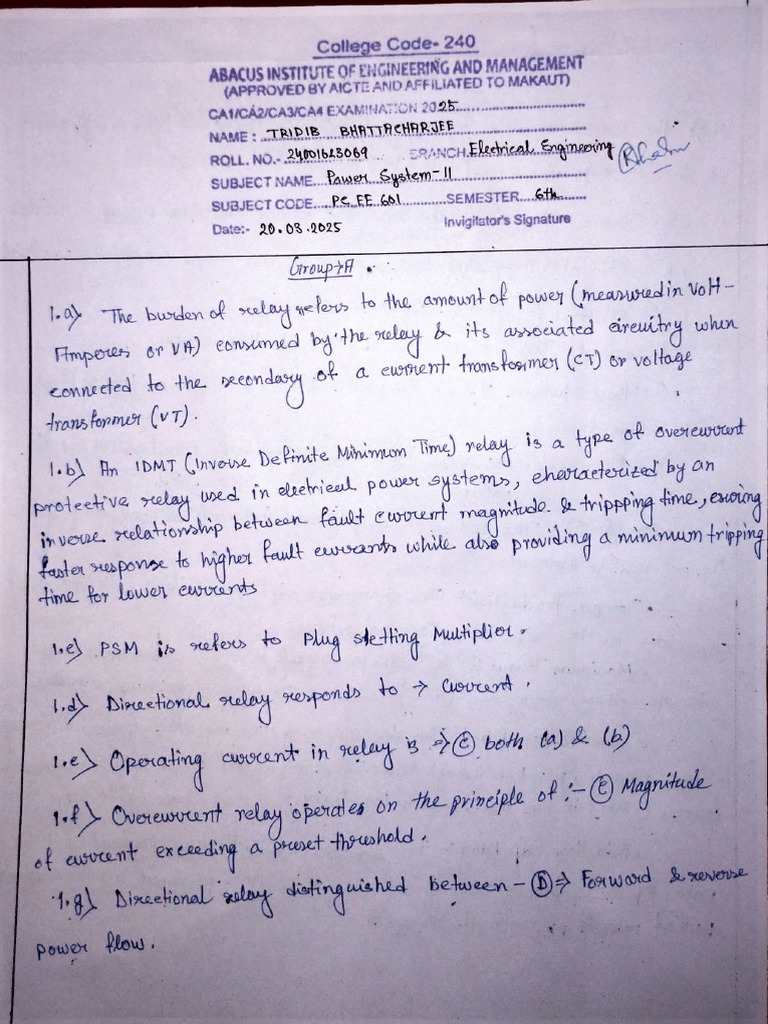 College Code- 240
ABACUS INSTITUTE OF ENGINEERING AND MANAGEMENT
(APPROVED BY AICTE AND AFFILIATED TO MAKAUT)
CA1/CA2/CA3/CA4 EXAMINATION 2025
NAME : TRIDIB BHATTACHARJEE
ROLL. NO.- 24001623069 BRANCH. Electrical Engineering
SUBJECT NAME. Power System-II
SUBJECT CODE. PC EE 601 SEMESTER 6th
Date:- 20.03.2025 Invigilator's Signature
Group→A .
1.a) The burden of relay refers to the amount of power (measured in Volt-
Amperes or VA) consumed by the relay & its associated circuitry when
connected to the secondary of a current transformer (CT) or voltage
transformer (VT).
1.b) An IDMT (Inverse Definite Minimum Time) relay is a type of overcurrent
protective relay used in electrical power systems, characterized by an
inverse relationship between fault current magnitude & trippping time, esuring
faster response to higher fault currents while also providing a minimum tripping
time for lower currents
1.c) PSM is refers to Plug setting Multiplier.
1.d) Directional relay responds to → Current.
1.e) Operating current in relay is ⇒ (C) both (a) & (b)
1.f) Overcurrent relay operates on the principle of :- (C) Magnitude
of current exceeding a preset threshold.
1.g) Directional relay distinguished between - (D) ⇒ Forward & reverse
power flow.